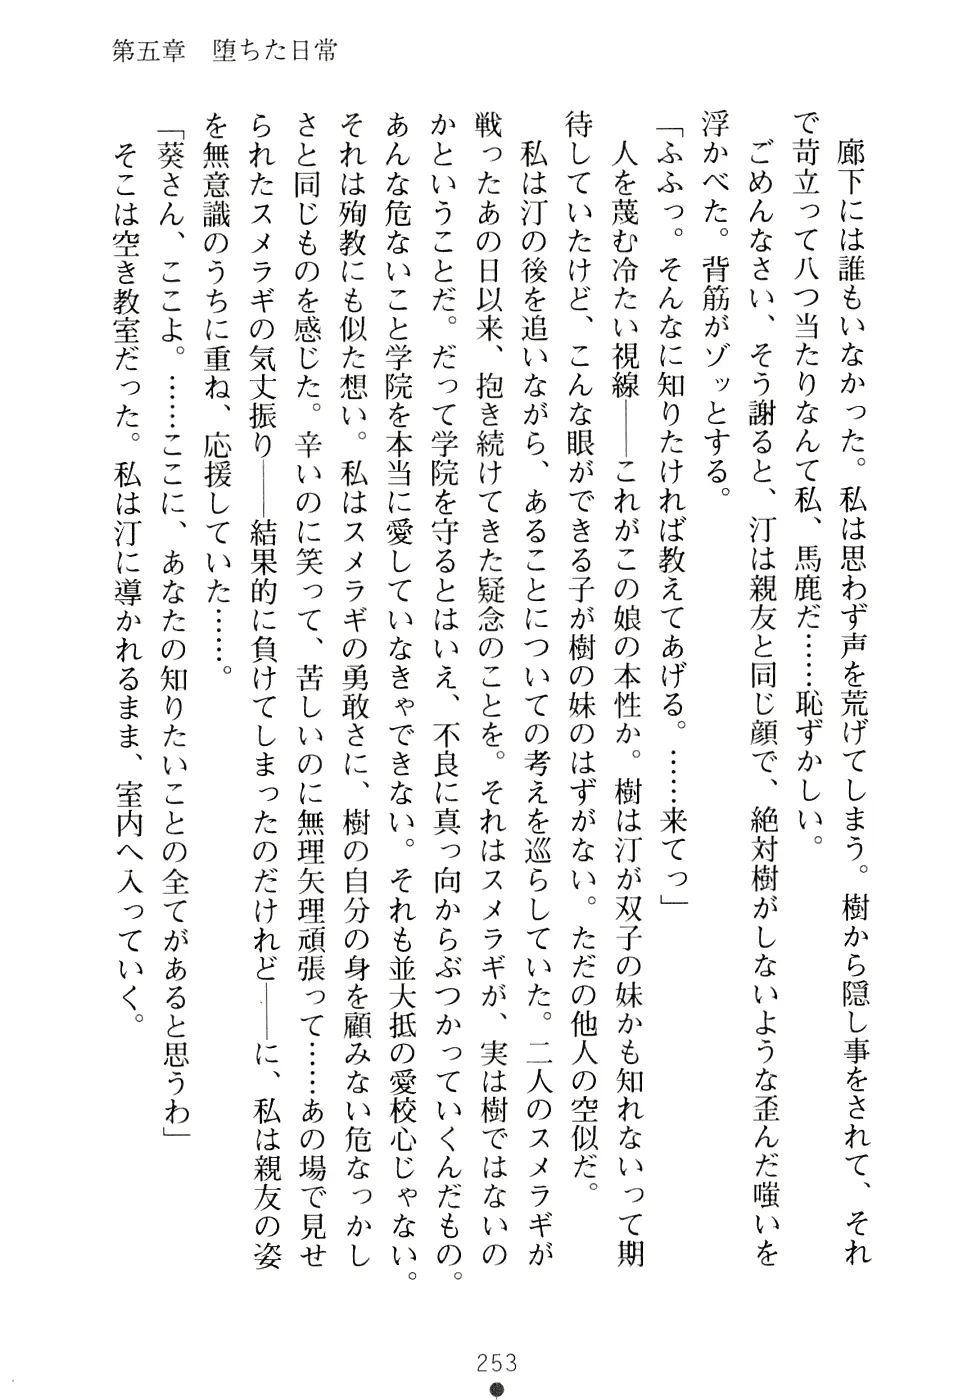 第五章　堕ちた日常
　廊下には誰もいなかった。私は思わず声を荒げてしまう。樹から隠し事をされて、それ
で苛立って八つ当たりなんて私、馬鹿だ……恥ずかしい。
　ごめんなさい、そう謝ると、汀は親友と同じ顔で、絶対樹がしないような歪んだ嗤いを
浮かべた。背筋がゾッとする。
「ふふっ。そんなに知りたければ教えてあげる。……来てっ」
　人を蔑む冷たい視線――これがこの娘の本性か。樹は汀が双子の妹かも知れないって期
待していたけど、こんな眼ができる子が樹の妹のはずがない。ただの他人の空似だ。
　私は汀の後を追いながら、あることについての考えを巡らしていた。二人のスメラギが
戦ったあの日以来、抱き続けてきた疑念のことを。それはスメラギが、実は樹ではないの
かということだ。だって学院を守るとはいえ、不良に真っ向からぶつかっていくんだもの。
あんな危ないこと学院を本当に愛していなきゃできない。それも並大抵の愛校心じゃない。
それは殉教にも似た想い。私はスメラギの勇敢さに、樹の自分の身を顧みない危なっかし
さと同じものを感じた。辛いのに笑って、苦しいのに無理矢理頑張って……あの場で見せ
られたスメラギの気丈振り――結果的に負けてしまったのだけれど――に、私は親友の姿
を無意識のうちに重ね、応援していた……。
「葵さん、ここよ。……ここに、あなたの知りたいことの全てがあると思うわ」
　そこは空き教室だった。私は汀に導かれるまま、室内へ入っていく。
253